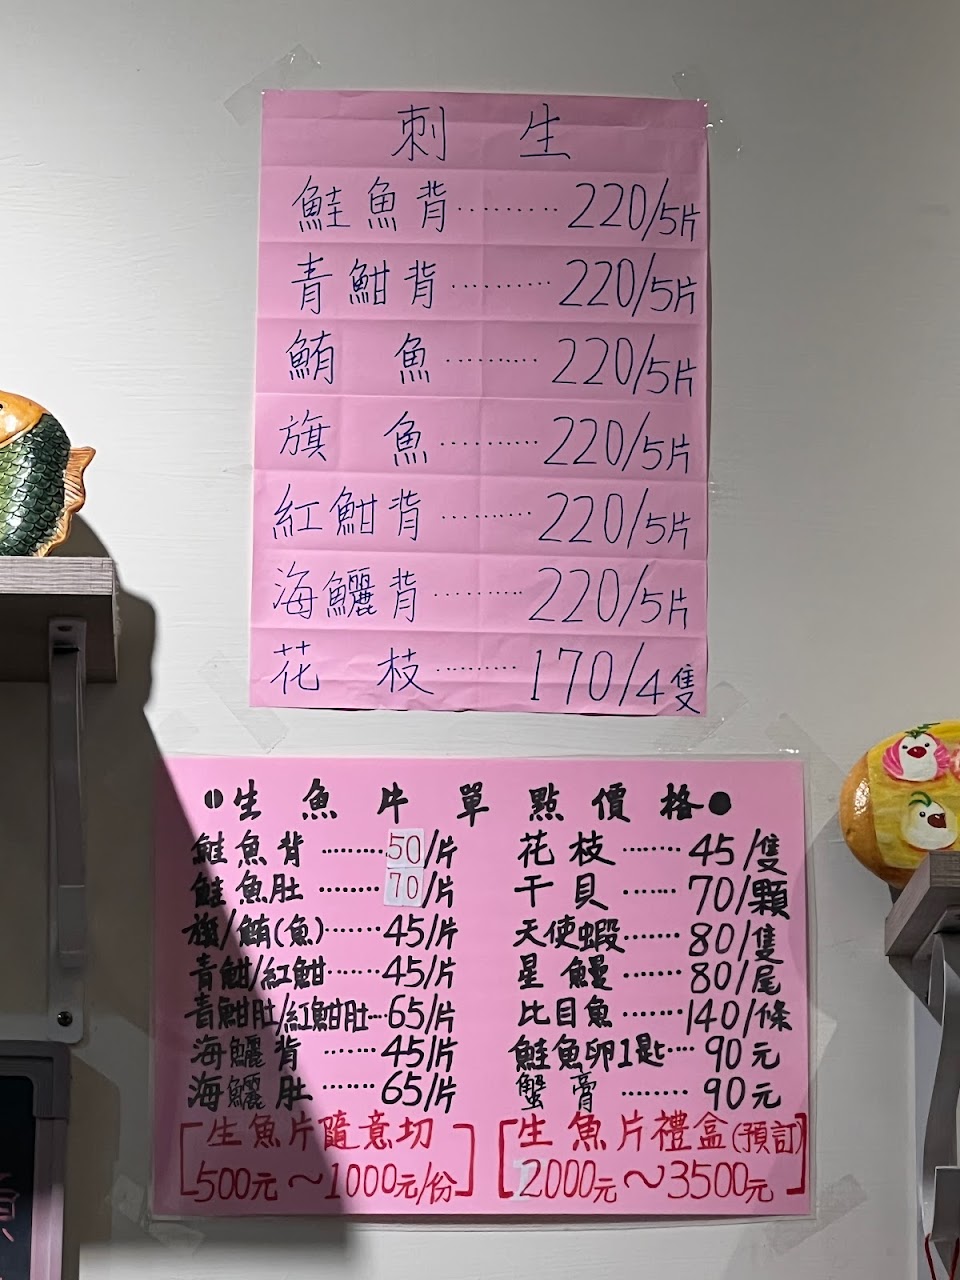 刺 生
鮭魚背………220/5片
青魽背………220/5片
鮪 魚………220/5片
旗 魚………220/5片
紅魽背………220/5片
海鱺背………220/5片
花 枝………170/4隻
●生魚片單點價格●
鮭魚背………50/片
鮭魚肚………70/片
旗/鮪(魚)……45/片
青魽/紅魽……45/片
青魽肚/紅魽肚…65/片
海鱺背 ……45/片
海鱺肚 ……65/片
花枝……45/隻
干貝……70/顆
天使蝦……80/隻
星鰻……80/尾
比目魚……140/條
鮭魚卵1匙…90元
蟹膏……90元
[生魚片隨意切
500元～1000元/份]
[生魚片禮盒(預訂)
2000元～3500元]